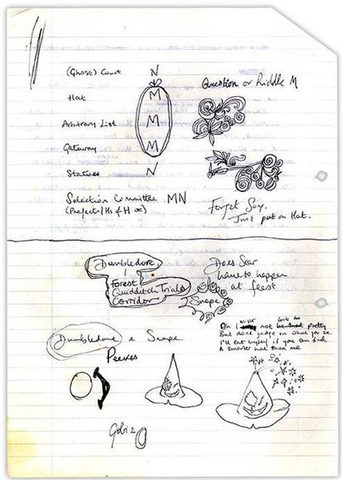 (Ghost) Court N
Hat M
Question or Riddle M
Arbitrary List M
Gateway M
Statues N
Selection Committee MN
(Prefects / Hs of H
Forget Say.
Just put on Hat.
Dumbledore
1. Forest
Quidditch Trials
Corridor
2 Snape
Does
have to happen
at feast
Dumbledore & Snape
Peeves
Oh I not pretty
But don't judge on what you see
I'll eat myself if you can find
A smarter hat than me